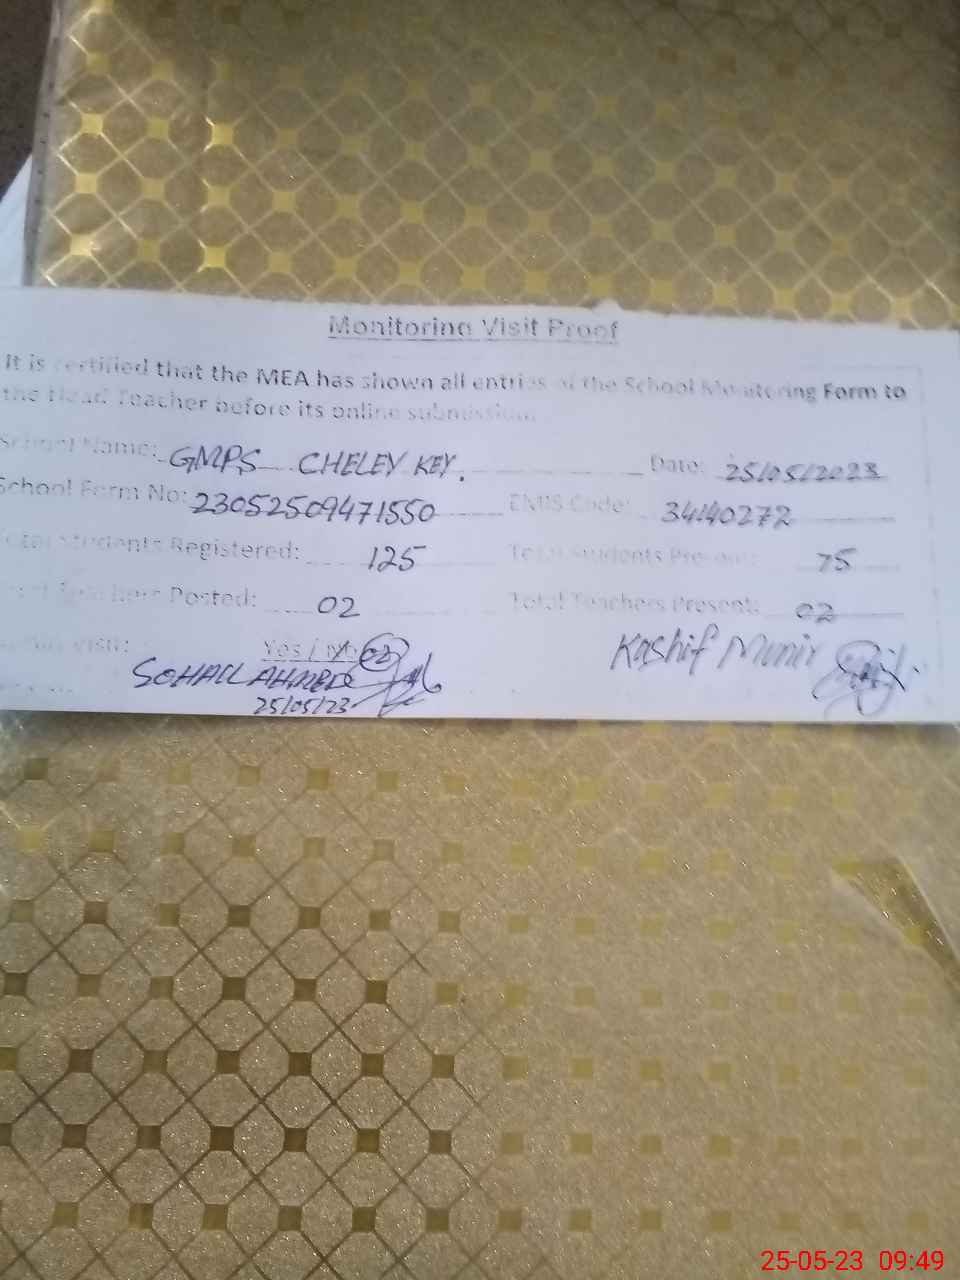 Monitoring Visit Proof
It is certified that the MEA has shown all entries of the School Monitoring Form to
the Head Teacher before its online submission.
School Name: GMPS CHELEY KEY. Date: 25/05/2023
School Form No: 23052509471550 EMIS Code: 34140272
Total Students Registered: 125 Total Students Present: 75
Total Teachers Posted: 02 Total Teachers Present: 02
Visit: Yes / No 02
SOHAIL AHMED Kashif Munir
25/05/23
25-05-23 09:49